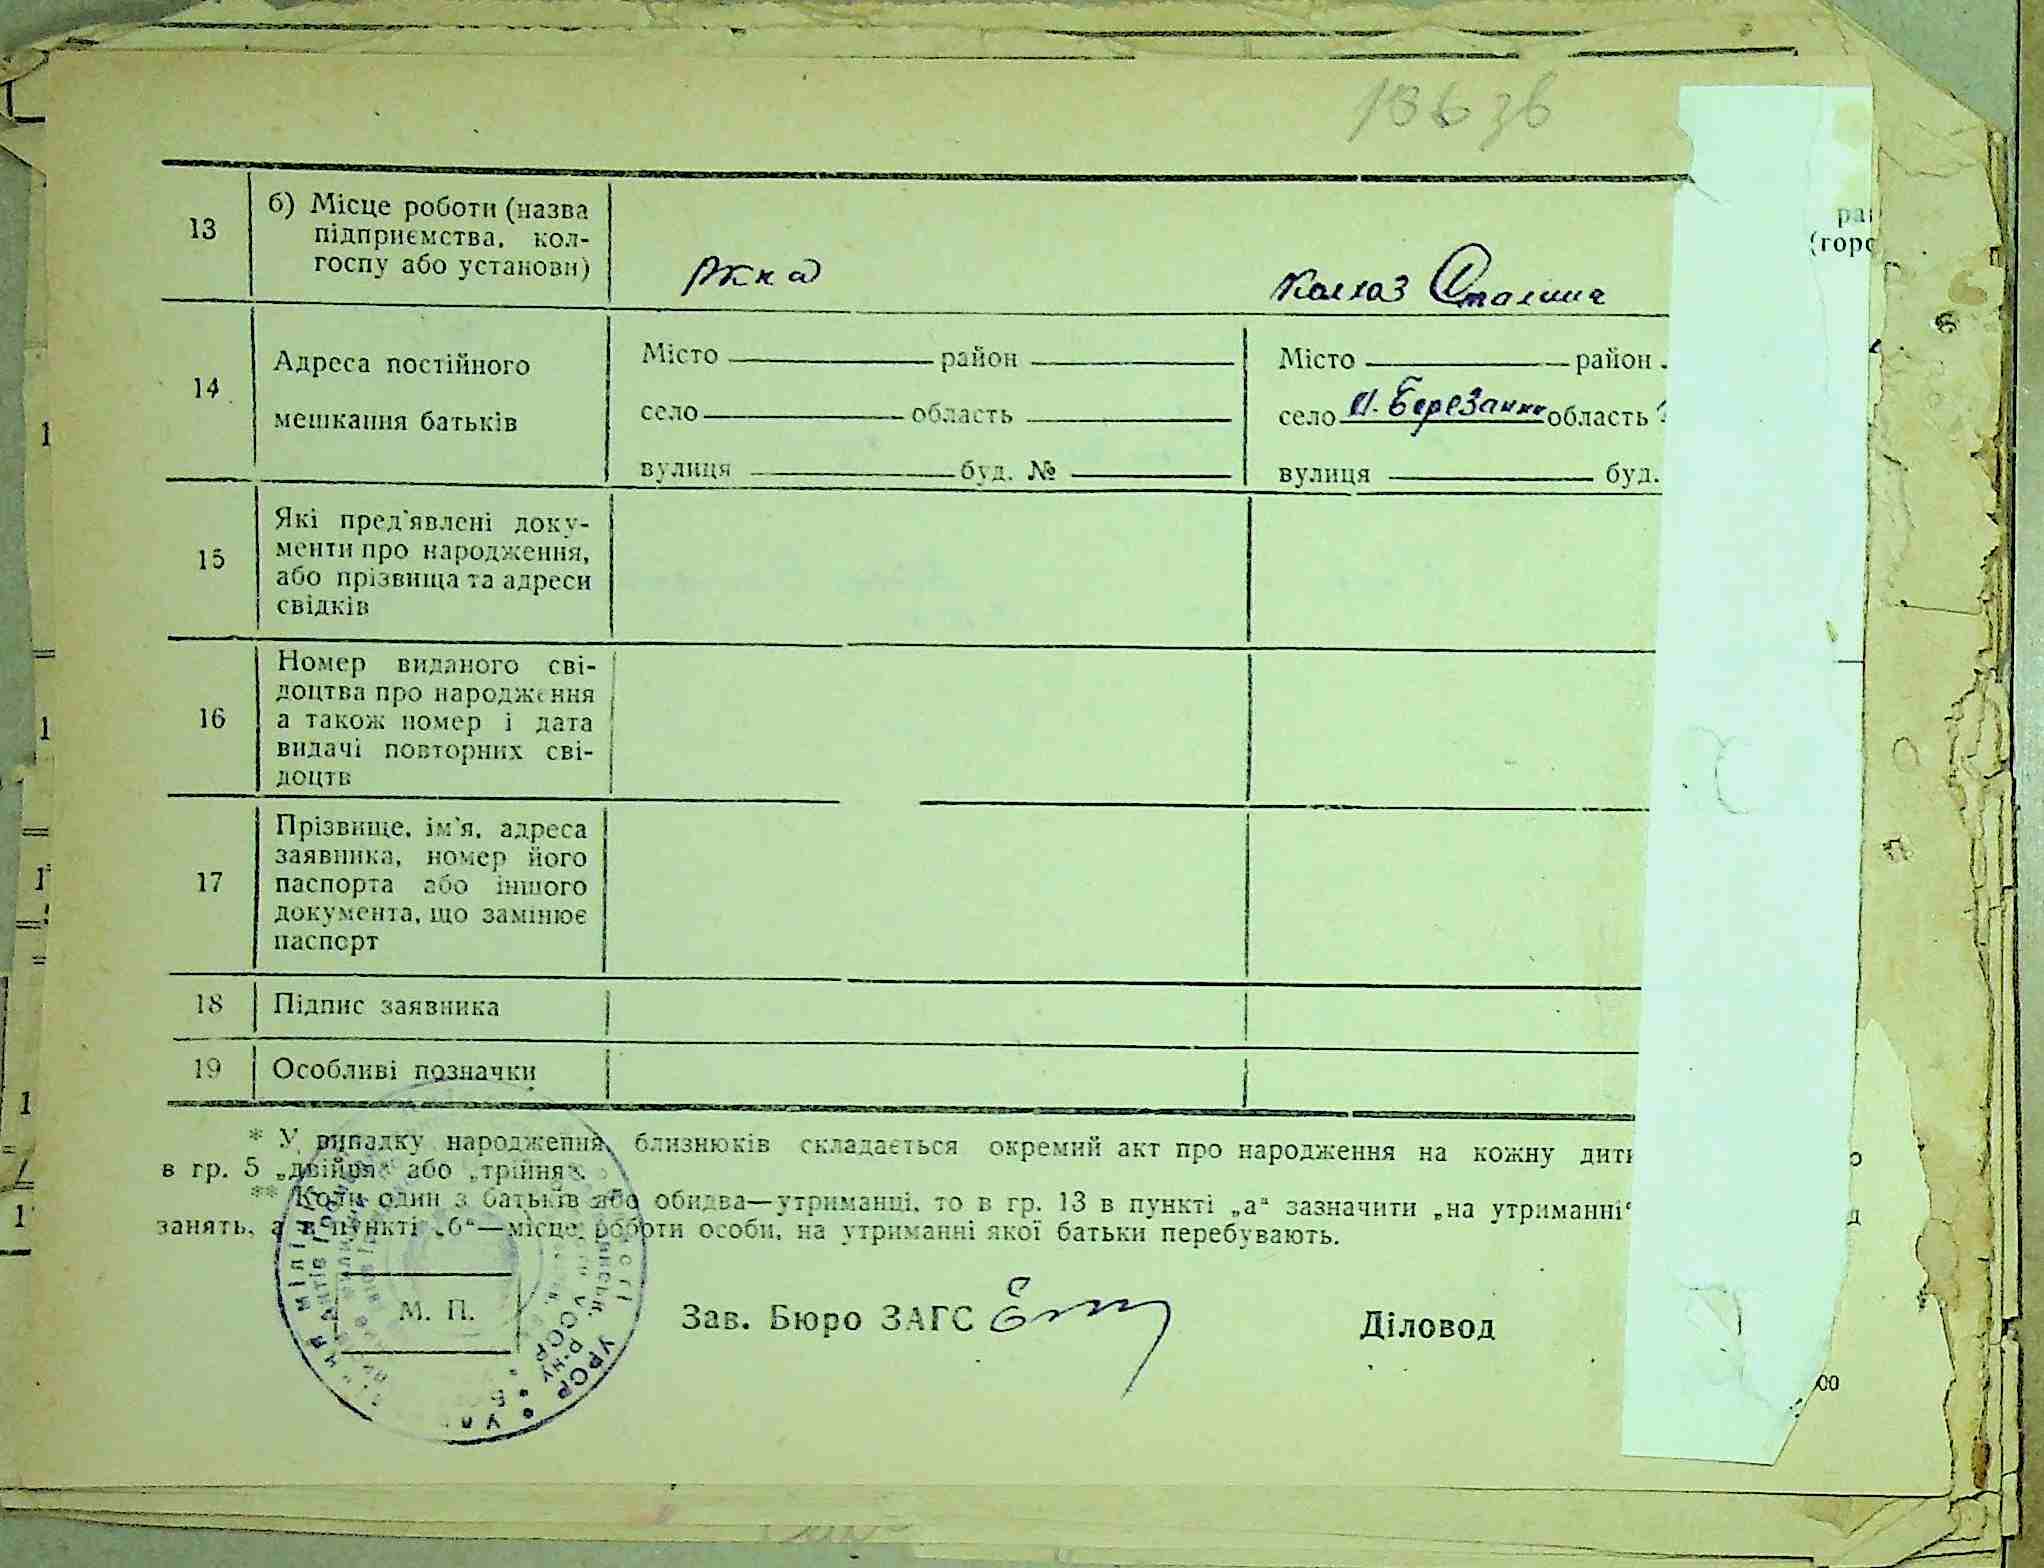 13
б) Місце роботи (назва
підприємства, кол-
госпу або установи)
ркка
Колхоз Сталина
14
Адреса постійного
мешкання батьків
Місто район
село область
вулиця буд. №
Місто район
село Березанка область
вулиця буд.
15
Які пред'явлені доку-
менти про народження,
або прізвища та адреси
свідків
16
Номер виданого сві-
доцтва про народження
а також номер і дата
видачі повторних сві-
доцтв
17
Прізвище, ім'я, адреса
заявника, номер його
паспорта або іншого
документа, що замінює
паспорт
18
Підпис заявника
19
Особливі позначки
* У випадку народження близнюків складається окремий акт про народження на кожну дити
в гр. 5 „двійня" або „трійня".
** Коли один з батьків або обидва—утриманці, то в гр. 13 в пункті „а" зазначити „на утриманні"
занять, а в пункті „б"—місце роботи особи, на утриманні якої батьки перебувають.
М. П.
Зав. Бюро ЗАГС
Діловод